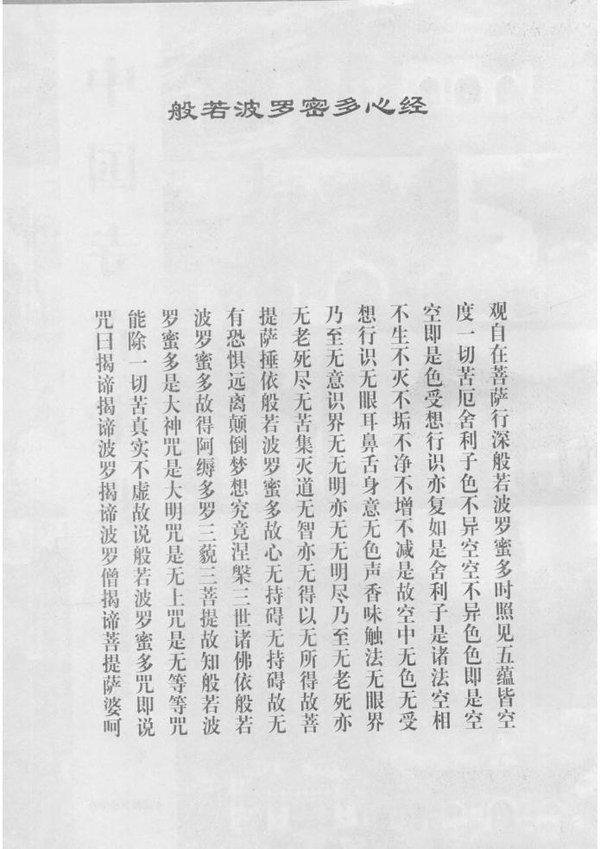 般若波罗密多心经
观自在菩萨行深般若波罗蜜多时照见五蕴皆空
度一切苦厄舍利子色不异空空不异色色即是空
空即是色受想行识亦复如是舍利子是诸法空相
不生不灭不垢不净不增不减是故空中无色无受
想行识无眼耳鼻舌身意无色声香味触法无眼界
乃至无意识界无无明亦无无明尽乃至无老死亦
无老死尽无苦集灭道无智亦无得以无所得故菩
提萨捶依般若波罗蜜多故心无持碍无持碍故无
有恐惧远离颠倒梦想究竟涅槃三世诸佛依般若
波罗蜜多故得阿缛多罗三藐三菩提故知般若波
罗蜜多是大神咒是大明咒是无上咒是无等等咒
能除一切苦真实不虚故说般若波罗蜜多咒即说
咒曰揭谛揭谛波罗揭谛波罗僧揭谛菩提萨婆呵
中国寺